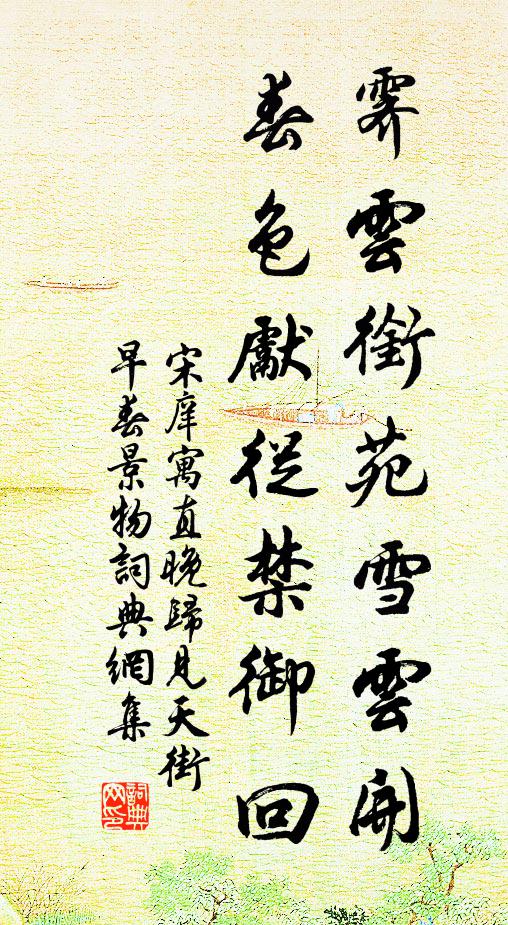 霽雲銜苑雪雲開
春色獻從禁御回
宋庠寓直晚歸見天街
早春景物詞典網集
詞典網印